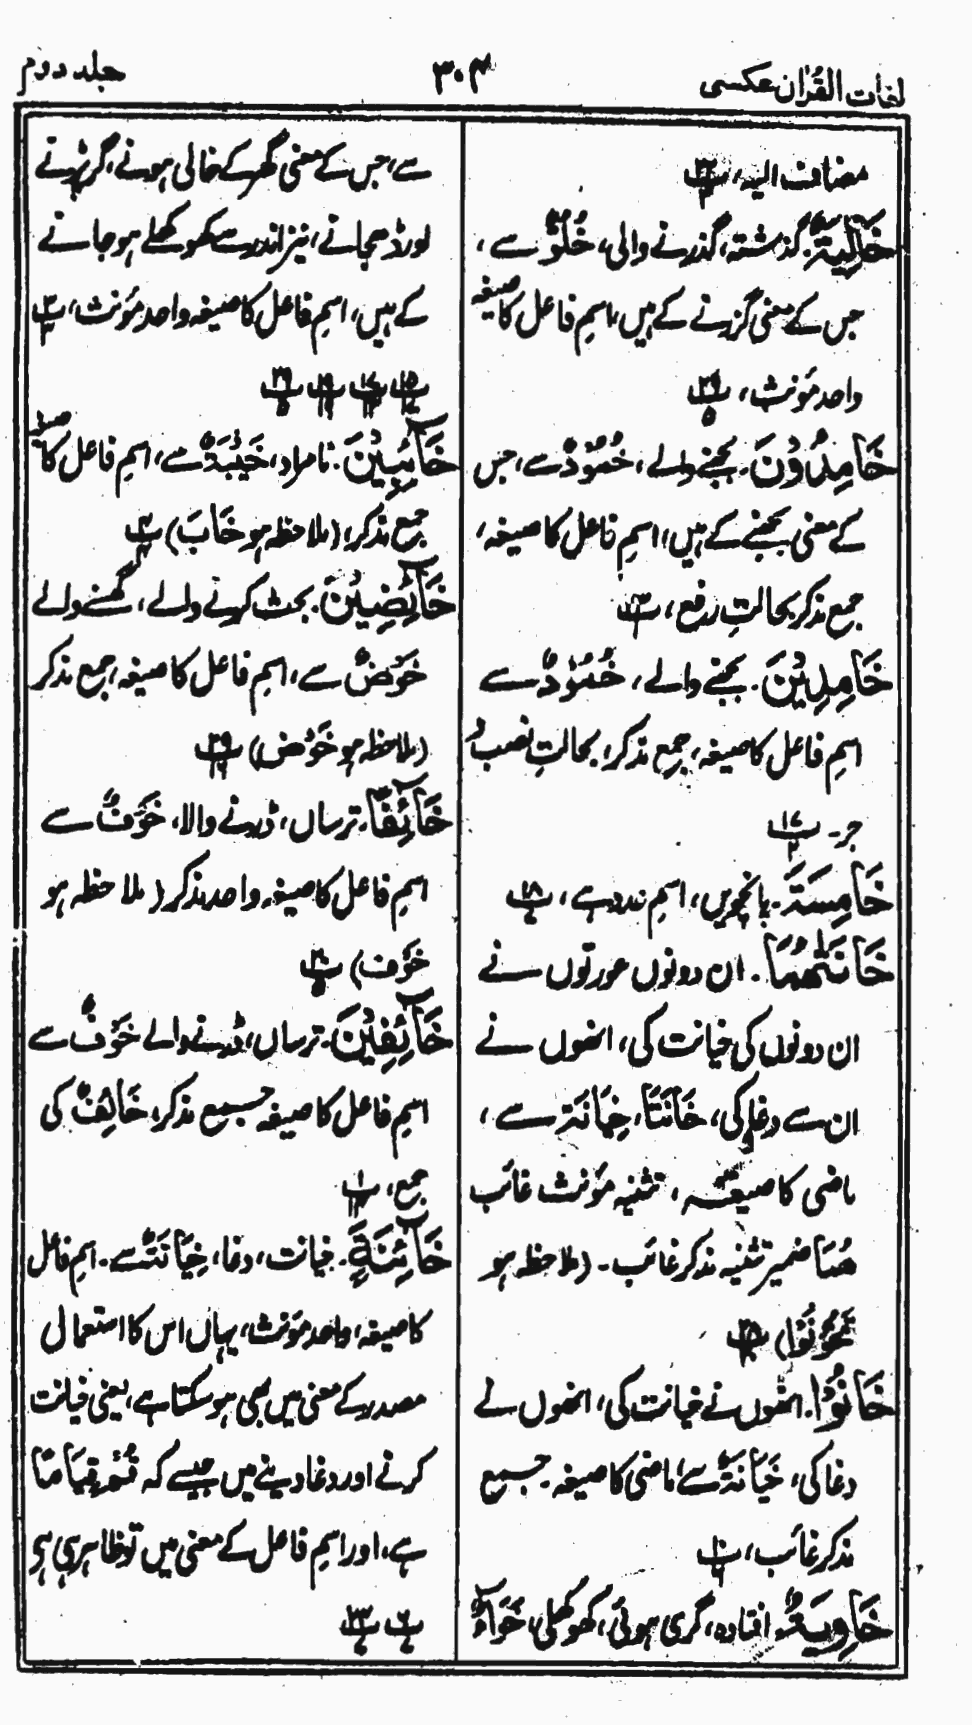 لغات القرآن عکسی
۳۰۴
جلد دوم
مضاف الیہ،
خَالِیَۃٌ. گذشتہ، گذرنے والی، خُلُوٌّ سے،
جس کے معنی گزرنے کے ہیں، اسمِ فاعل کا صیغہ
واحد مؤنث،
خَامِدُوْنَ. بجھنے والے، خُمُوْدٌ سے، جس
کے معنی بجھنے کے ہیں، اسمِ فاعل کا صیغہ،
جمع مذکر بحالتِ رفع،
خَامِدِیْنَ. بجھنے والے، خُمُوْدٌ سے
اسمِ فاعل کا صیغہ، جمع مذکر، بحالتِ نصب و
جر۔
خَامِسَۃَ. پانچویں، اسمِ عدد ہے،
خَانَتٰھُمَا. ان دونوں عورتوں نے
ان دونوں کی خیانت کی، انھوں نے
ان سے دغا کی، خَانَتَا، خِیَانَۃ سے،
ماضی کا صیغہ، تثنیہ مؤنث غائب
ھُمَا ضمیر تثنیہ مذکر غائب۔ (ملاحظہ ہو
تَخُوْنُوْا)
خَانُوْا. انھوں نے خیانت کی، انھوں نے
دغا کی، خِیَانَۃٌ سے، ماضی کا صیغہ۔ جمع
مذکر غائب،
خَاوِیَۃٌ. افتادہ، گری ہوئی، کھوکھلی، خَوَاءٌ
سے، جس کے معنی گھر کے خالی ہونے، گر پڑنے
اور ڈھ جانے، نیز اندر سے کھوکھلے ہو جانے
کے ہیں، اسمِ فاعل کا صیغہ واحد مؤنث،
خَآئِبِیْنَ. نامراد، خَیْبَۃٌ سے، اسمِ فاعل کا صیغہ
جمع مذکر، (ملاحظہ ہو خَابَ)
خَآئِضِیْنَ. بحث کرنے والے، گھسنے والے
خَوْضٌ سے، اسمِ فاعل کا صیغہ، جمع مذکر
(ملاحظہ ہو خَوْض)
خَآئِفًا. ترساں، ڈرنے والا، خَوْفٌ سے
اسمِ فاعل کا صیغہ واحد مذکر (ملاحظہ ہو
خَوْف)
خَآئِفِیْنَ. ترساں، ڈرنے والے خَوْفٌ سے
اسمِ فاعل کا صیغہ جمع مذکر، خَائِفٌ کی
جمع،
خَآئِنَۃٍ. خیانت، دغا، خِیَانَۃٌ سے۔ اسمِ فاعل
کا صیغہ، واحد مؤنث، یہاں اس کا استعمال
مصدر کے معنی میں بھی ہو سکتا ہے، یعنی خیانت
کرنے اور دغا دینے میں جیسے کہ قُمْ قِیَامًا
ہے، اور اسمِ فاعل کے معنی میں تو ظاہر ہی ہے